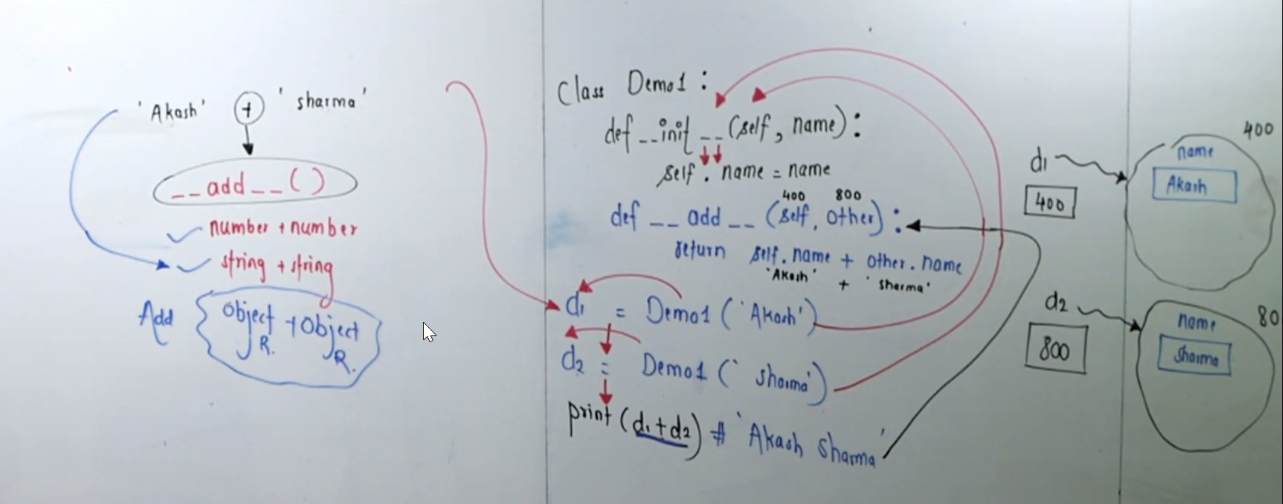 'Akash' + 'sharma'
__add__()
number + number
string + string
Add
Object + Object
R. R.
Class Demo1 :
def __init__(self, name) :
self . name = name
400 800
def __add__(self, other) :
return self.name + other.name
'Akash' + 'sharma'
d1 = Demo1 ('Akash')
d2 = Demo1 (' sharma')
print (d1+d2) # 'Akash sharma'
d1
400
400
name
Akash
d2
800
80
name
sharma